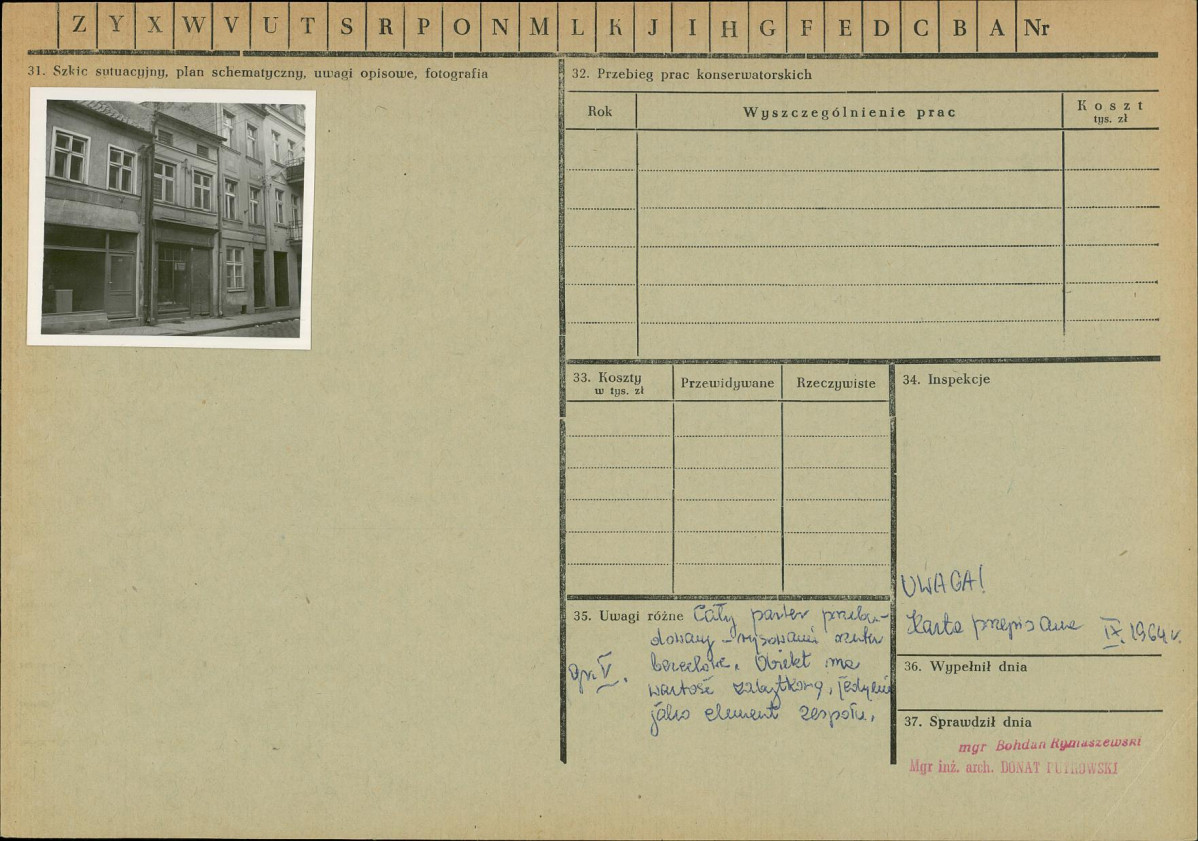 Z Y X W V U T S R P O N M L K J I H G F E D C B A Nr
31. Szkic sytuacyjny, plan schematyczny, uwagi opisowe, fotografia
32. Przebieg prac konserwatorskich
Rok Wyszczególnienie prac Koszt
tys. zł
33. Koszty
w tys. zł
Przewidywane Rzeczywiste
34. Inspekcje
UWAGA!
Karta przepisana IX. 1964 r.
35. Uwagi różne Cały parter przebu-
dowany –
gr. V. Obiekt ma
wartość zabytkową, jedynie
jako element zespołu.
36. Wypełnił dnia
37. Sprawdził dnia
mgr Bohdan Rymaszewski
Mgr inż. arch. DONAT